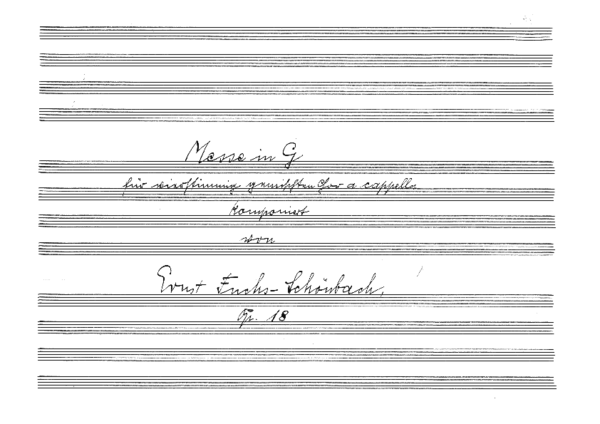 Messe in G
für vierstimmig gemischten Chor a cappella
komponiert
von
Ernst Fuchs-Schönbach,
Op. 18